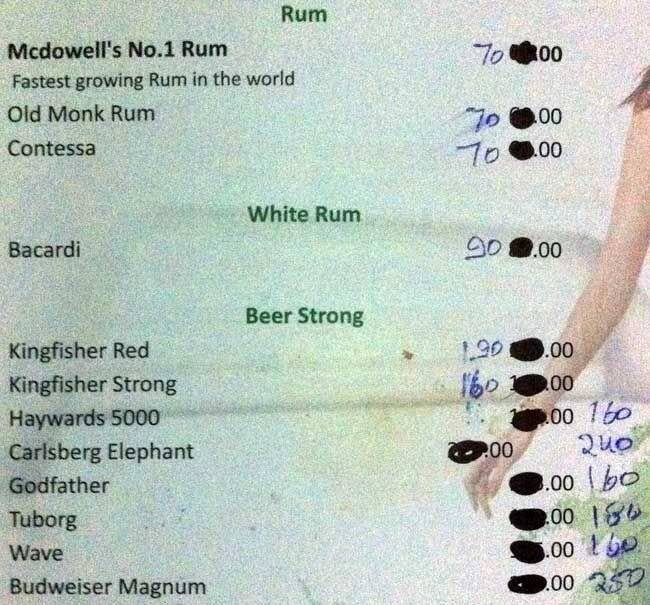 Rum
Mcdowell's No.1 Rum 70 .00
Fastest growing Rum in the world
Old Monk Rum 70 .00
Contessa 70 .00
White Rum
Bacardi 90 .00
Beer Strong
Kingfisher Red 190 .00
Kingfisher Strong 160 .00
Haywards 5000 .00 160
Carlsberg Elephant .00 240
Godfather .00 160
Tuborg .00 180
Wave .00 160
Budweiser Magnum .00 250